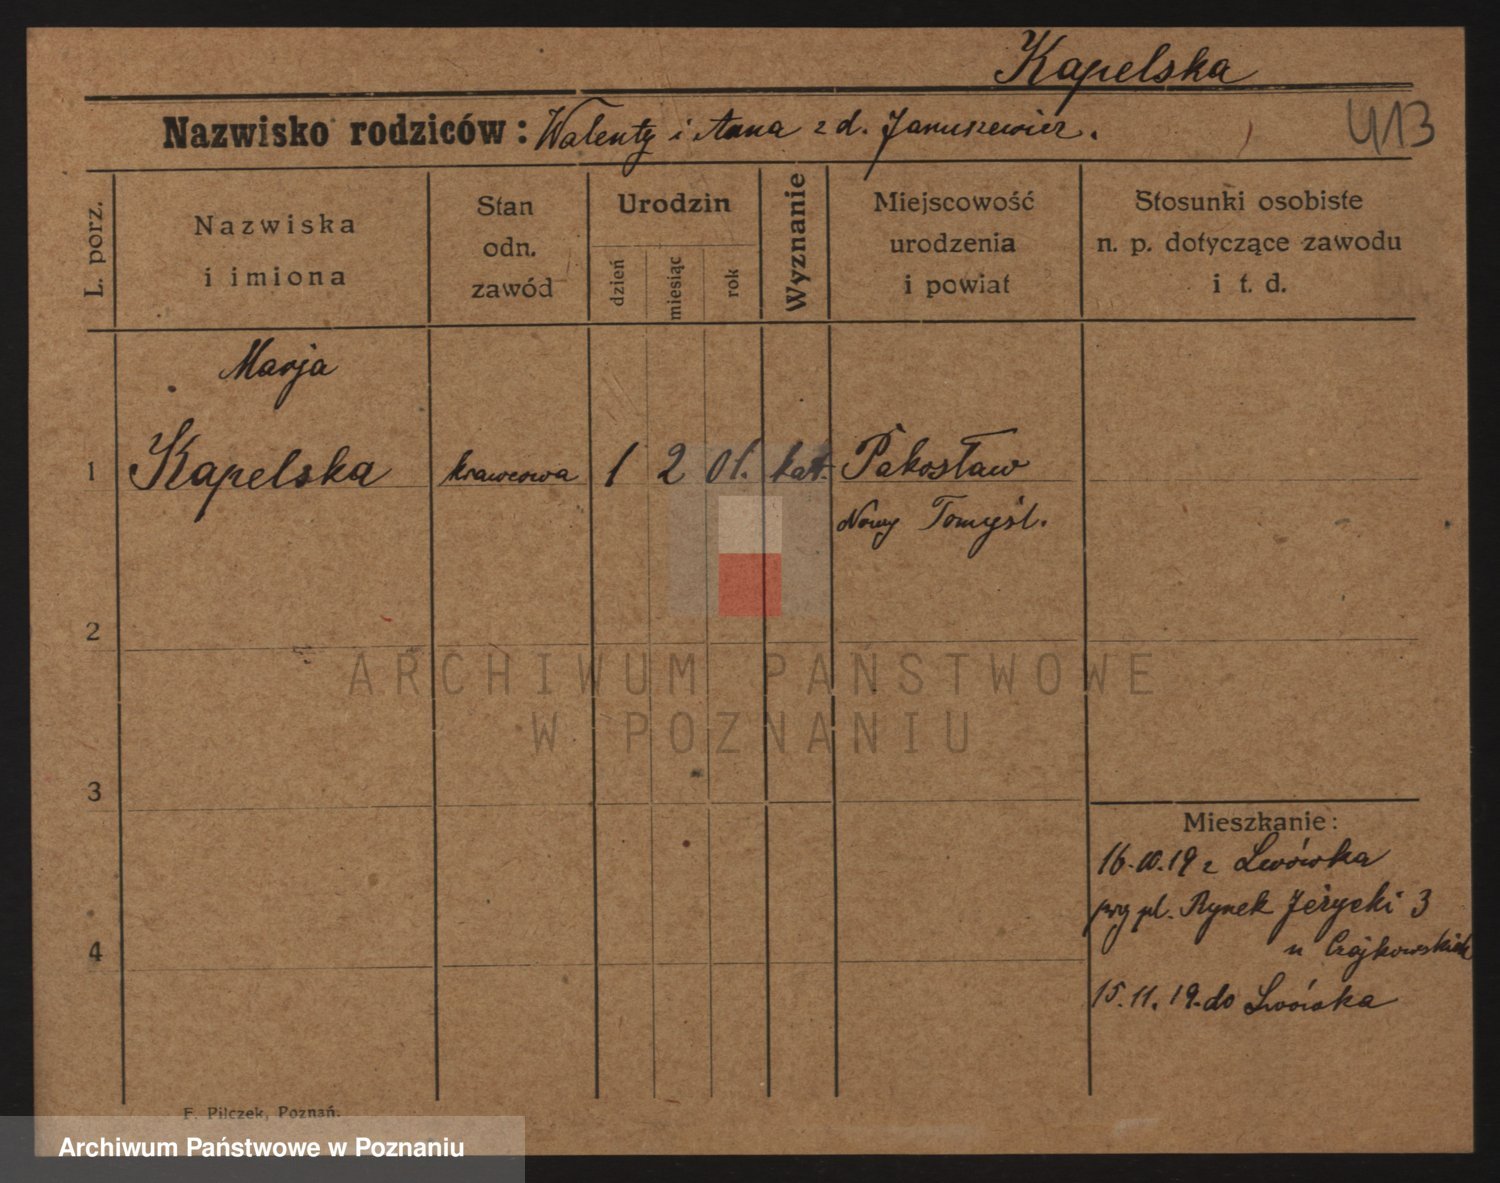 Kapelska
Nazwisko rodziców: Walenty i Anna z d. Januszewicz.
413
L. porz.
Nazwiska
i imiona
Stan
odn.
zawód
Urodzin
dzień
miesiąc
rok
Wyznanie
Miejscowość
urodzenia
i powiat
Stosunki osobiste
n. p. dotyczące zawodu
i t. d.
Marja
1 Kapelska krawcowa 1 2 01. kat. Pakosław
Nowy Tomyśl.
2
ARCHIWUM PAŃSTWOWE
W POZNANIU
3
Mieszkanie:
16.10.19 z Lwówka
pl. Rynek Jeżycki 3
4
u Czajkowskich
15.11.19. do Lwówka
F. Pilczek, Poznań.
Archiwum Państwowe w Poznaniu